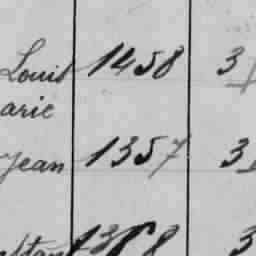 Louis 1458 3
arie
Jean 1357 3
3